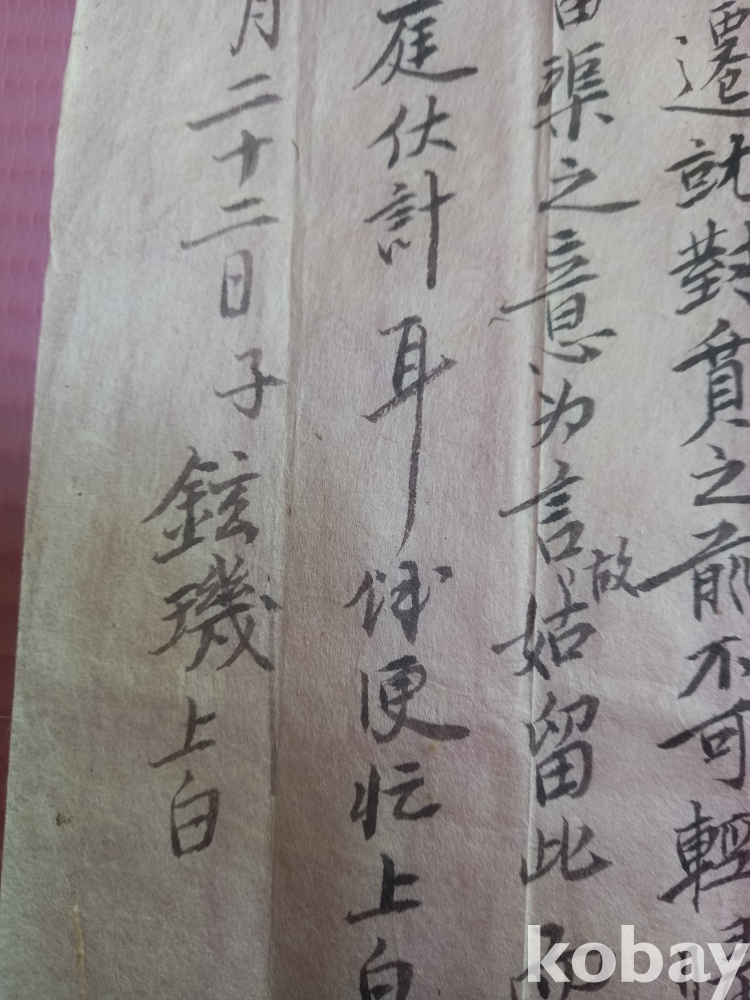 遷就對質之前不可輕
渠之意为言故姑留此
庭伏計耳俄便忙上白
月二十二日子鉉璣上白
kobay